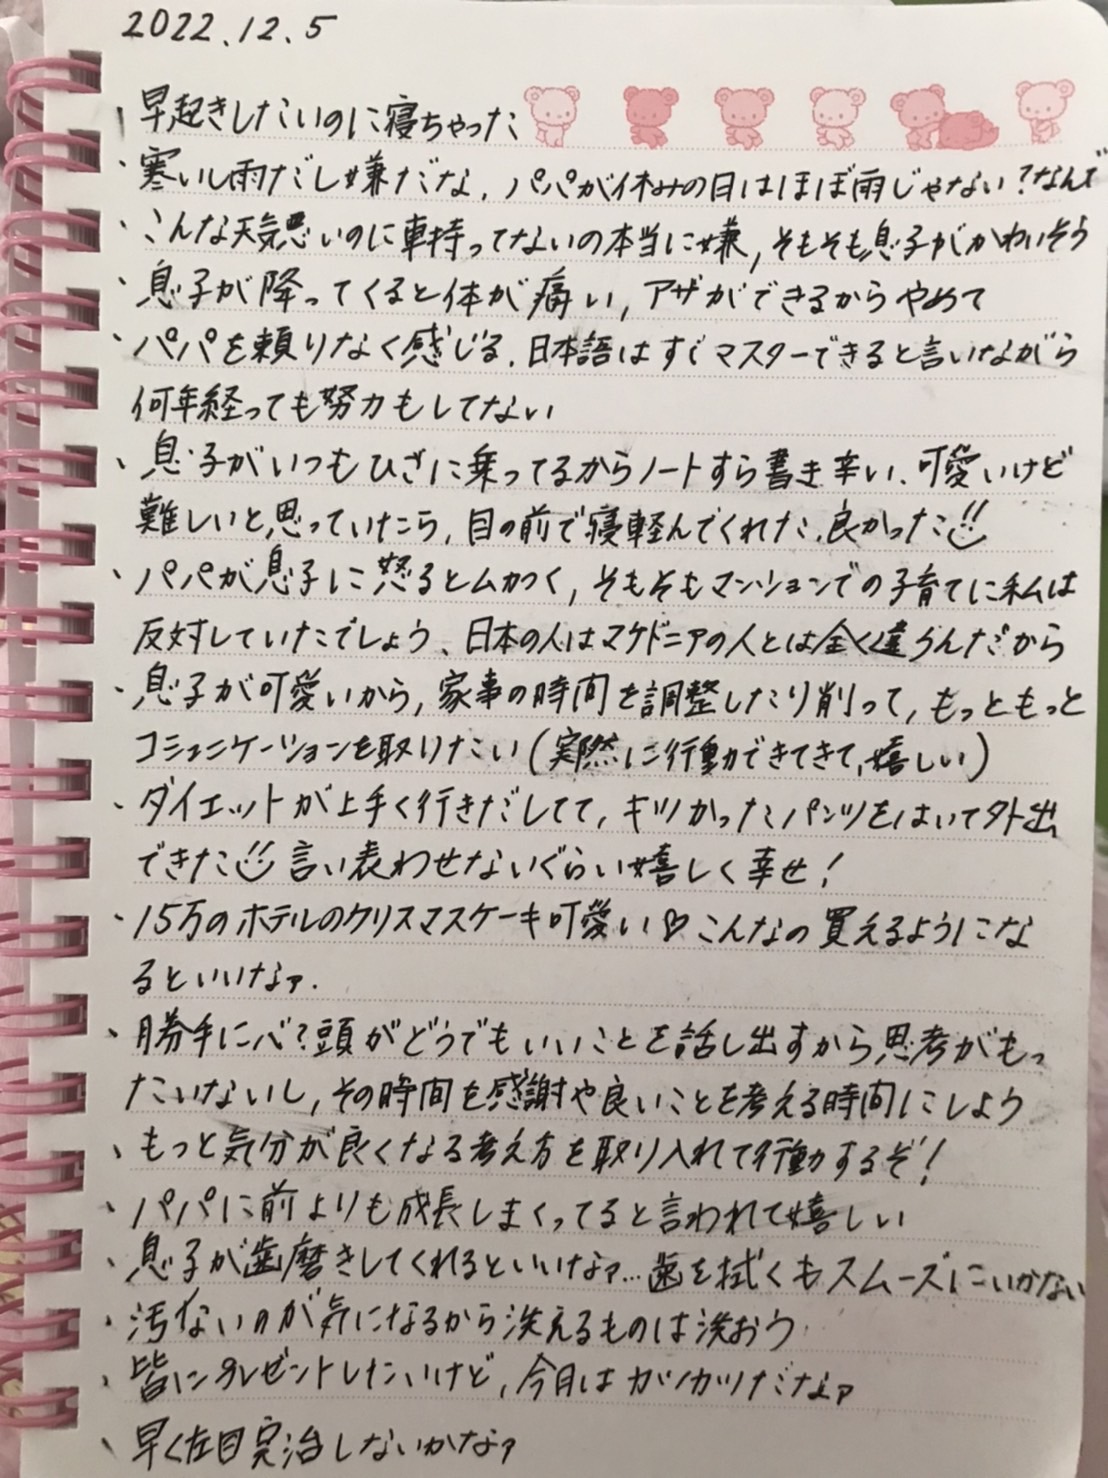 2022.12.5
、早起きしたいのに寝ちゃった
・寒いし雨だし嫌だな、パパが休みの日はほぼ雨じゃない?なんで
・こんな天気悪いのに車持ってないの本当に嫌、そもそも息子がかわいそう
・息子が降ってくると体が痛い、アザができるからやめて
・パパを頼りなく感じる、日本語はすぐマスターできると言いながら
何年経っても努力もしてない
、息子がいつもひざに乗ってるからノートすら書き辛い、可愛いけど
難しいと思っていたら、目の前で寝転んでくれた、良かった
・パパが息子に怒るとムカつく、そもそもマンションでの子育てに私は
反対していたでしょう、日本の人はマケドニアの人とは全く違うんだから
・息子が可愛いから、家事の時間を調整したり削って、もっともっと
コミュニケーションを取りたい(実際に行動できてきて、嬉しい)
・ダイエットが上手く行きだしてて、キツかったパンツをはいて外出
できた 言い表わせないぐらい嬉しく幸せ!
・15万のホテルのクリスマスケーキ可愛い♡こんなの買えるようにな
るといいなァ.
、勝手に心?頭がどうでもいいことを話し出すから思考がもっ
たいないし、その時間を感謝や良いことを考える時間にしよう
、もっと気分が良くなる考え方を取り入れて行動するぞ!
、パパに前よりも成長しまくってると言われて嬉しい
、息子が歯磨きしてくれるといいなァ...歯を拭くもスムーズにいかない
・汚ないのが気になるから洗えるものは洗おう
、皆にプレゼントしたいけど、今月はカツカツだなァ
、早く左目完治しないかなァ